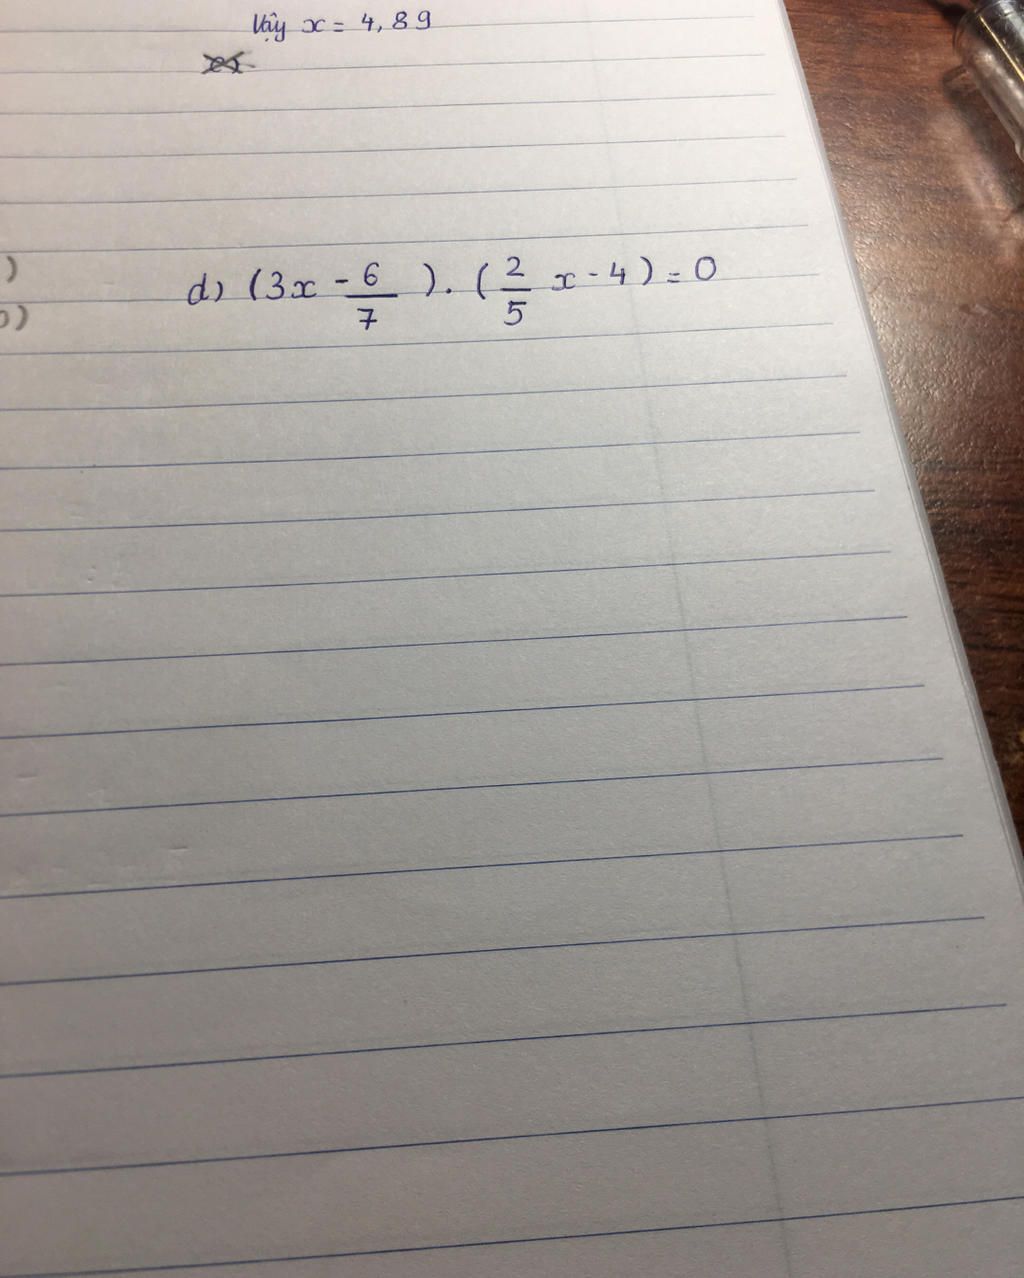 Vậy x = 4,89
)
d) (3x - 6/7) . (2/5 x - 4) = 0
)